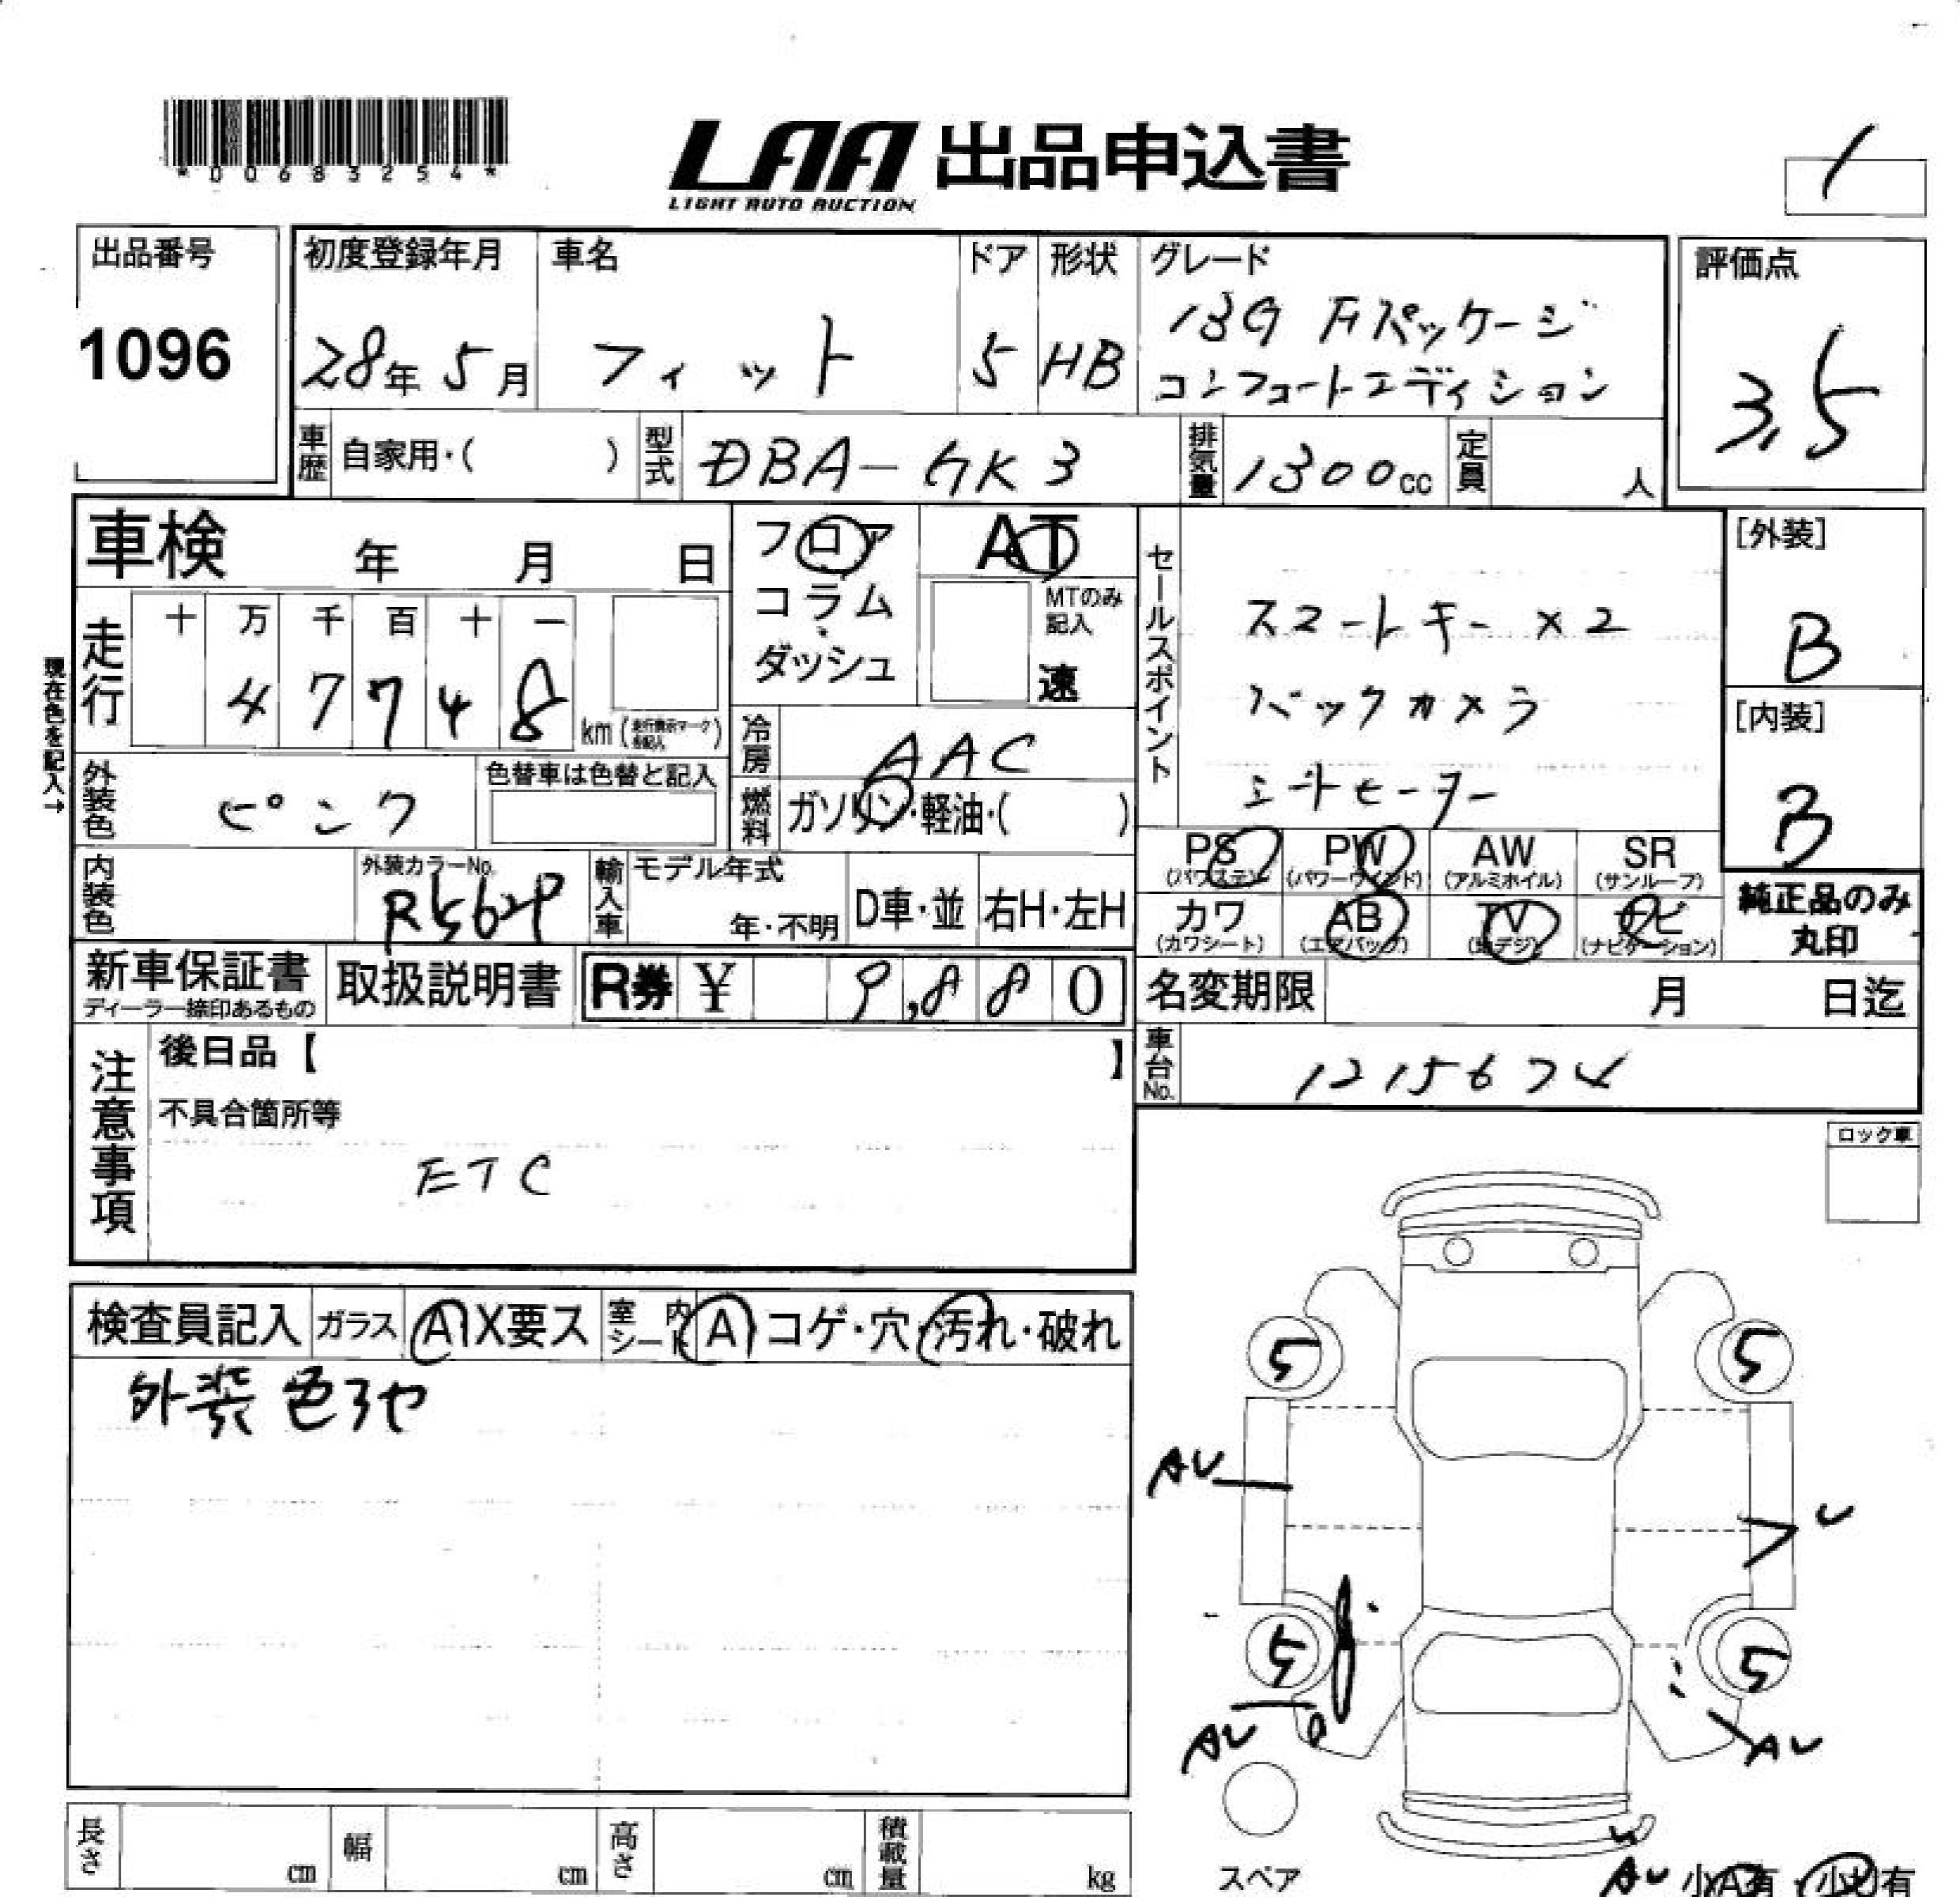 *00683254*
LAA 出品申込書
LIGHT AUTO AUCTION
出品番号
1096
初度登録年月
28年 5月
車名
フィット
ドア
5
形状
HB
グレード
13G Fパッケージ
コンフォートエディション
評価点
3.5
車歴 自家用・( )
型式 DBA-GK3
排気量 1300cc
定員 人
車検 年 月 日
フロア
コラム
・
ダッシュ
AT
MTのみ
記入
速
走行
十 万 千 百 十 一
4 7 7 4 8
km
現在色を記入→
冷房 AAC
燃料 ガソリン・軽油・( )
外装色 ピンク
色替車は色替と記入
内装色
外装カラーNo.
輸入車
モデル年式
年・不明
D車・並
右H・左H
セールスポイント
スマートキー ×2
バックカメラ
シートヒーター
[外装]
B
[内装]
B
PS
(パワステ)
PW
(パワーウインド)
AW
(アルミホイル)
SR
(サンルーフ)
カワ
(カワシート)
AB
(エアバッグ)
TV
(地デジ)
ナビ
(ナビゲーション)
純正品のみ
丸印
新車保証書
ディーラー捺印あるもの
取扱説明書
R券 ¥ 9,880
名変期限 月 日迄
車台No. 1215674
注意事項
後日品【 】
不具合箇所等
ETC
ロック車
検査員記入
ガラス A X要ス
室内シート A コゲ・穴・汚れ・破れ
外装色
5
5
AU
U
5
5
AU
AU
スペア
AU
小A有・小U有
長さ cm
幅 cm
高さ cm
積載量 kg